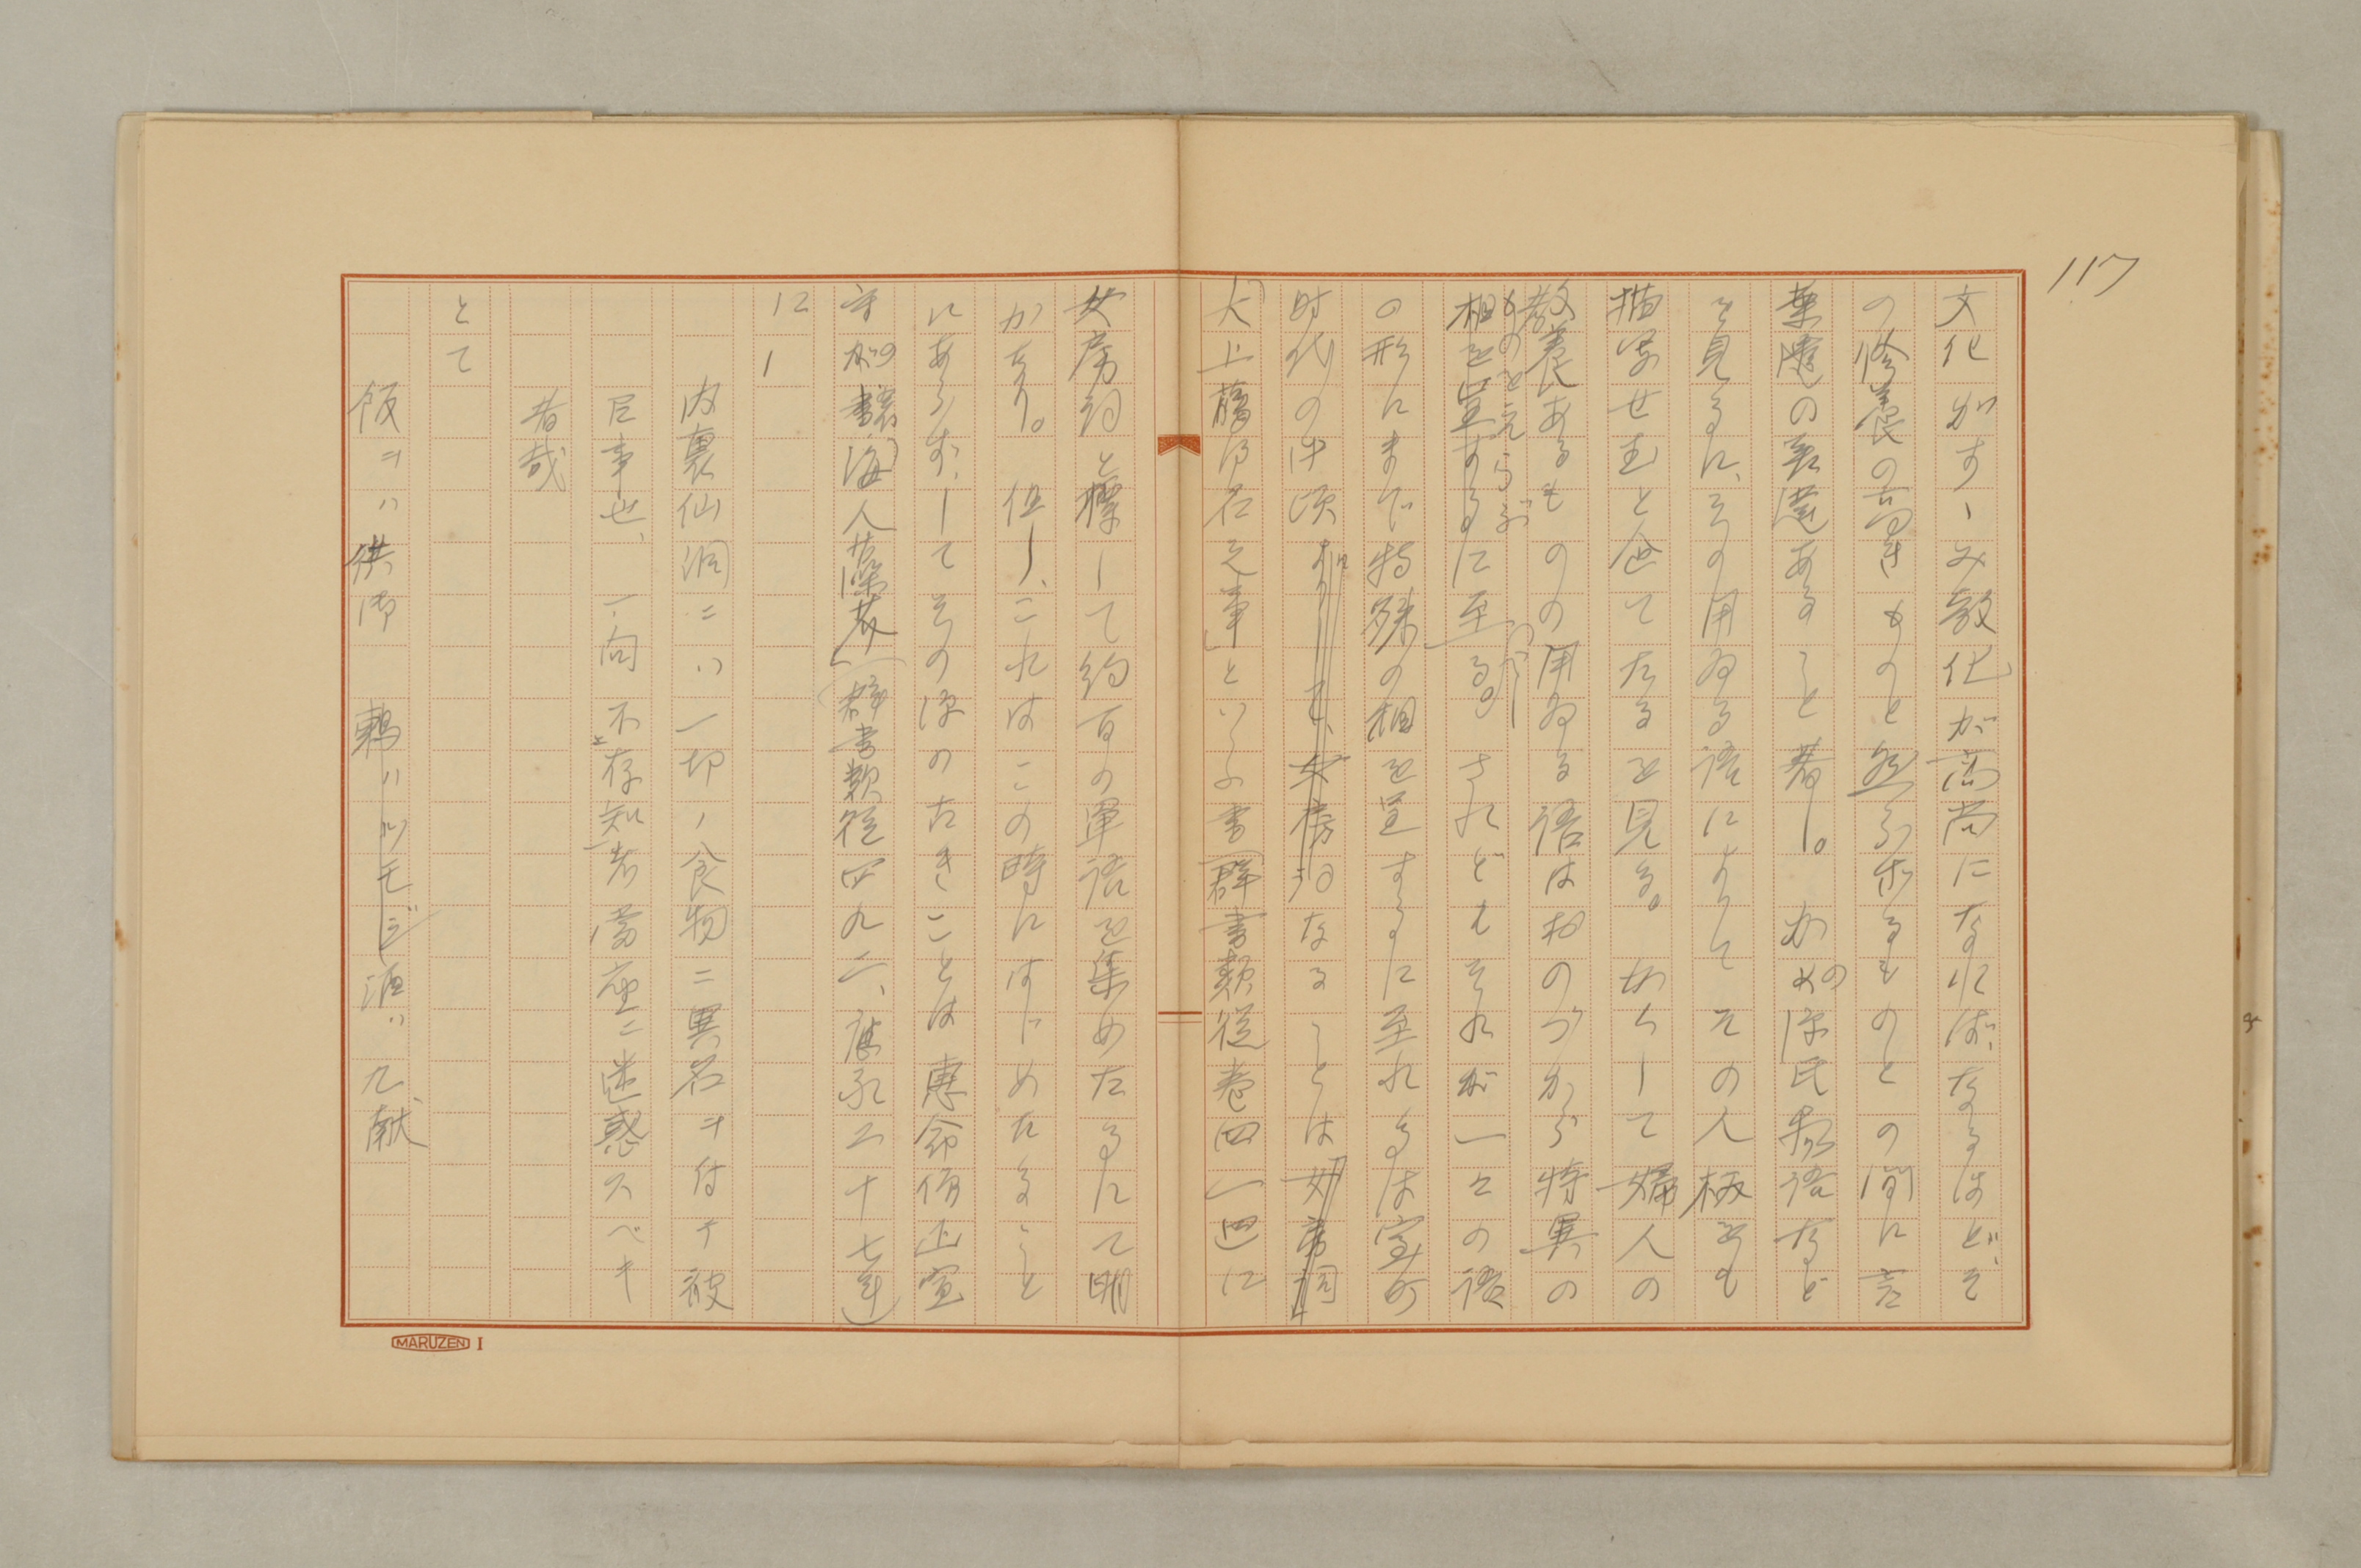 117
文化がすゝみ教化が高尚になればなるほど、そ
の修養の高きものと然らざるものとの間に言
葉遣の差違あること著し。かの源氏物語など
を見るに、その用ゐる語によりてその人柄をも
描写せむと企てたるを見る。かくして婦人の
教養あるものの用ゐる語はおのづから特異の
ものとえらぶ
相を呈するに至る。されどもそれが一々の語
の形にまで特殊の相を呈するに至れるは室町
時代の中頃なることは
「大上﨟御名之事」といふ書(群書類従巻四一四)に
女房詞と標して約百の単語を集めたるにて明
かなり。但し、これはこの時にはじめたること
にあらずしてその源の古きことは恵命院宣
守の書「海人藻芥」(群書類従四九二、応永二十七年)
に
内裏仙洞ニハ一切ノ食物ニ異名ヲ付テ被
召事也、一向不存知者当座ニ迷惑スベキ
者哉
とて
飯ヲハ供御 酒ハ九献
MARUZEN I